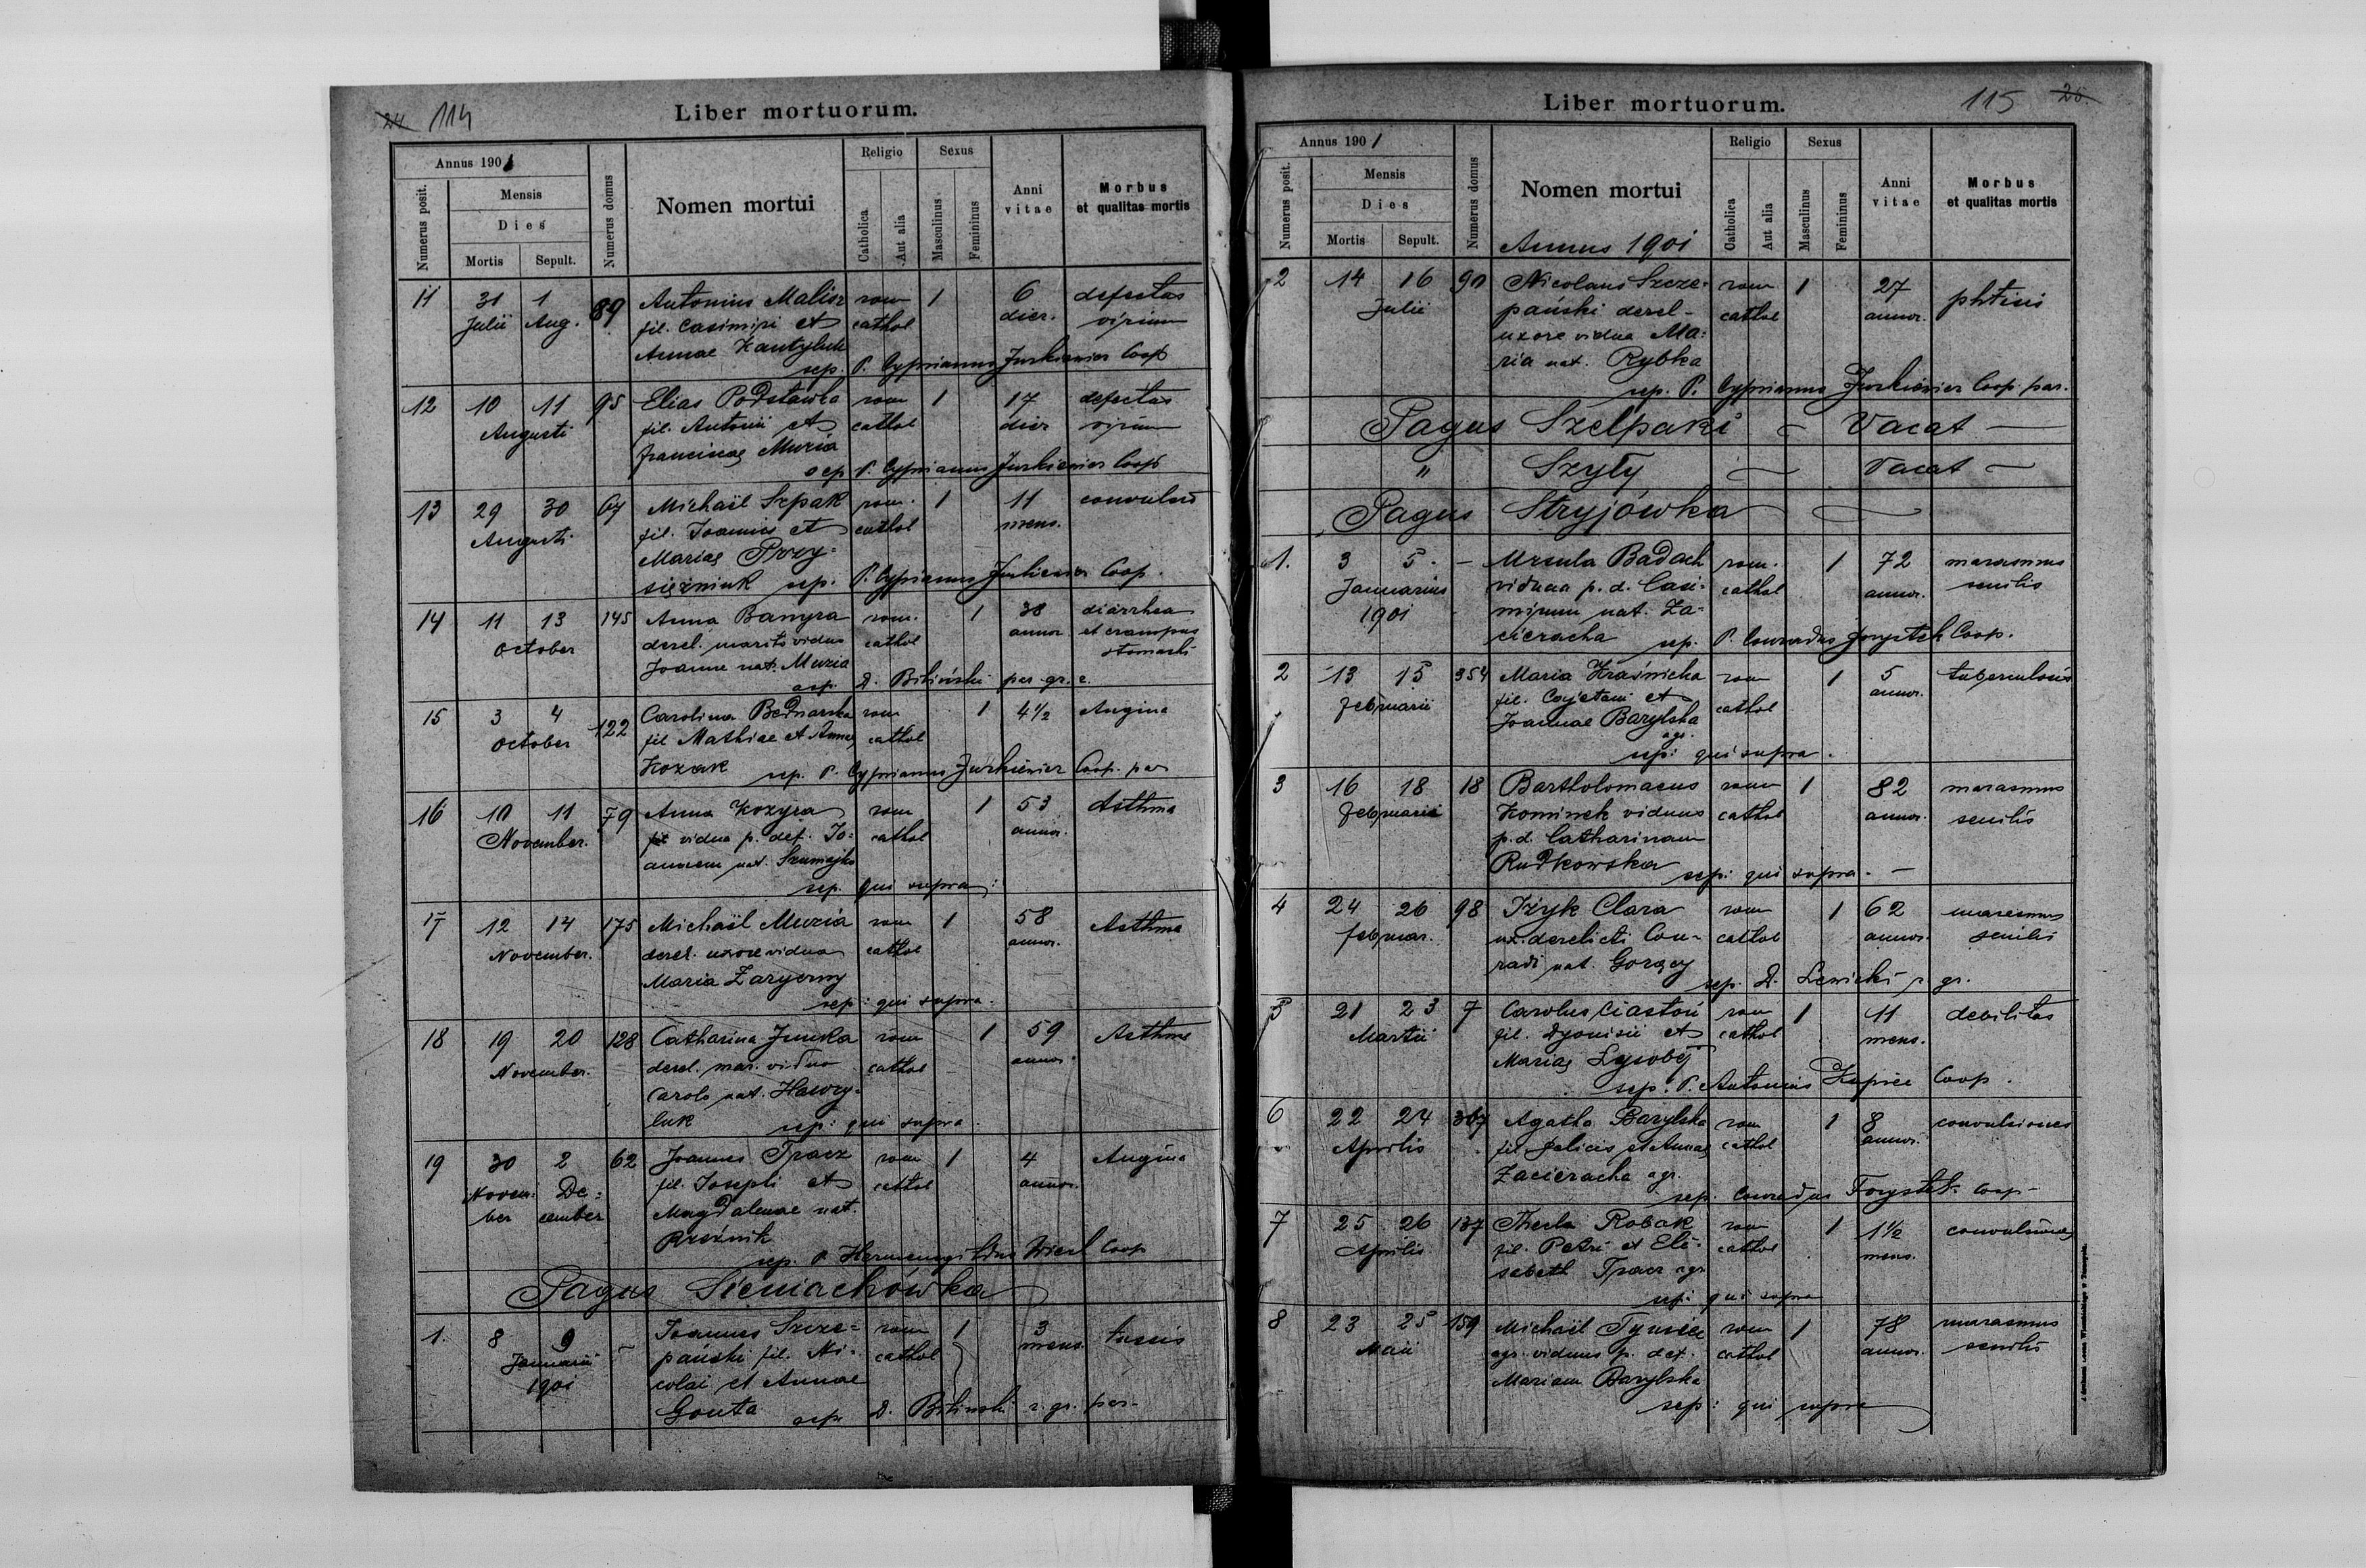 24 114
Liber mortuorum.
Annus 1901
Numerus posit.
Mensis
Dies
Mortis Sepult.
Numerus domus
Nomen mortui
Religio
Catholica
Aut alia
Sexus
Masculinus
Femininus
Anni vitae
Morbus
et qualitas mortis
11 31 1 89 Antonius Malisz rom 1 6 defectus
Julii Aug. fil. Casimiri et cathol dier. virium
Annae Kantyluk
sep. P. Cyprianus Jurkiewicz Coop
12 10 11 95 Elias Podstawka rom 1 17 defectus
Augusti fil. Antonii et cathol dier virium
Franciscae Muzia
sep P. Cyprianus Jurkiewicz Coop
13 29 30 67 Michaël Szpak rom. 1 11 convulsio
Augusti fil. Joannis et cathol mens.
Mariae Przy-
siężniuk sep. P. Cyprianus Jurkiewicz Coop.
14 11 13 145 Anna Banyra rom. 1 38 diarrhea
October derel. marito viduo cathol annor. et crampus
Joanne nat. Muzia stomachi
sep. D. Biliński par. gr. c.
15 3 4 122 Carolina Bednarska rom 1 4½ Angina
October fil Mathiae et Annae cathol
Kozak sep. P. Cyprianus Jurkiewicz Coop. par
16 10 11 79 Anna Kozyra rom 1 53 Asthma
November. fil vidua p. def. Jo- cathol annor.
annem nat. Szumajko
sep. qui supra:
17 12 14 175 Michaël Muzia rom 1 58 Asthma
November. derel. uxore vidua cathol annor.
Maria Zaryczny
sep: qui supra.
18 19 20 128 Catharina Junka rom 1 59 Asthma
November. derel. mar. viduo cathol annor.
Carolo nat. Hawry-
luk sep: qui supra.
19 30 2 62 Joannes Tracz rom 1 4 Angina
Novem- De- fil. Josephi et cathol annor.
ber cember Magdalenae nat.
Rzeźnik
sep. P. Hermenegildus Coop
Pagus Sieniachówka
1. 8 9 – Joannes Szcze- rom 1 3 tussis
Januarii pański fil. Ni- cathol mens.
1901 colai et Annae
Gonta sep D. Biliński r. gr. par.
Liber mortuorum.
115 25.
Annus 1901
Numerus posit.
Mensis
Dies
Mortis Sepult.
Numerus domus
Nomen mortui
Annus 1901
Religio
Catholica
Aut alia
Sexus
Masculinus
Femininus
Anni vitae
Morbus
et qualitas mortis
2 14 16 90 Nicolaus Szcze- rom 1 27 phtisis
Julii pański derel- cathol annor.
uxore vidua Ma-
ria nat. Rybka
sep. P. Cyprianus Jurkiewicz Coop. par.
Pagus Szelpaki – Vacat –
" Szyły – Vacat –
Pagus Stryjówka
1. 3 5. – Ursula Badach rom. 1 72 marasmus
Januarius vidua p. d. Casi- cathol annor. senilis
1901 mirum nat. Za-
cieracha sep. P. Conradus Forystek Coop.
2 13 15 354 Maria Kraśnicka rom 1 5 tuberculosis
Februarii fil. Cajetani et cathol annor.
Joannae Barylska
agr.
sep: qui supra.
3 16 18 18 Bartholomaeus rom 1 82 marasmus
Februarii Kominek viduus cathol annor. senilis
p. d. Catharinam
Rudkowska sep: qui supra. –
4 24 26 98 Iżyk Clara rom 1 62 marasmus
Februar. ux. derelicti Con- cathol annor. senilis
radi nat. Gorący
sep. D. Lewicki r gr.
5 21 23 7 Carolus Ciastoń rom 1 11 debilitas
Martii fil. Dyonisii et cathol mens.
Mariae Łysobej
sep: P. Antonius Kupiec Coop.
6 22 24 367 Agatha Barylska rom 1 8 convulsiones
Aprilis fil Felicis et Annae cathol annor.
Zacieracha agr.
sep. Conradus Forystek Coop –
7 25 26 137 Thecla Robak rom 1 1½ convulsiones
Aprilis fil. Petri et Eli- cathol mens.
sabeth Tracz agr
sep: qui supra
8 23 25 159 Michaël Tymec rom 1 78 marasmus
Maii agr. viduus p. def. cathol annor. senilis
Mariam Barylska
sep: qui supra